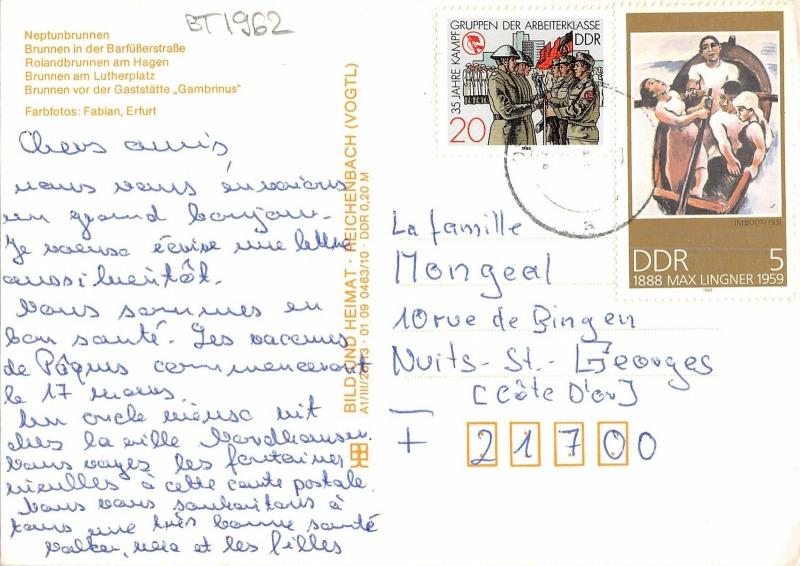 BT1962
Neptunbrunnen
Brunnen in der Barfüßerstraße
Rolandbrunnen am Hagen
Brunnen am Lutherplatz
Brunnen vor der Gaststätte „Gambrinus"
Farbfotos: Fabian, Erfurt
Chers amis,
nous vous envoions
un grand bonjour.
Je vous écrise une lettre
aussi bientôt.
Nous sommes en
bon santé. Les vacances
de Pâques commenceront
le 17 mars.
Un oncle vit
dans la ville Nordhausen.
Vous voyez les fontaines
à cette carte postale.
Nous vous souhaitons à
tous une très bonne santé
et les filles
BILD UND HEIMAT · REICHENBACH (VOGTL)
A1/III/26/13 · 01 09 0463/10 · DDR 0,20 M
35 JAHRE KAMPFGRUPPEN DER ARBEITERKLASSE
DDR
20
1988
IM BOOT (1931)
DDR 5
1888 MAX LINGNER 1959
1988
a
La famille
Mongeal
10 rue de Bingen
Nuits-St.-Georges
[Côte D'or]
F 21700